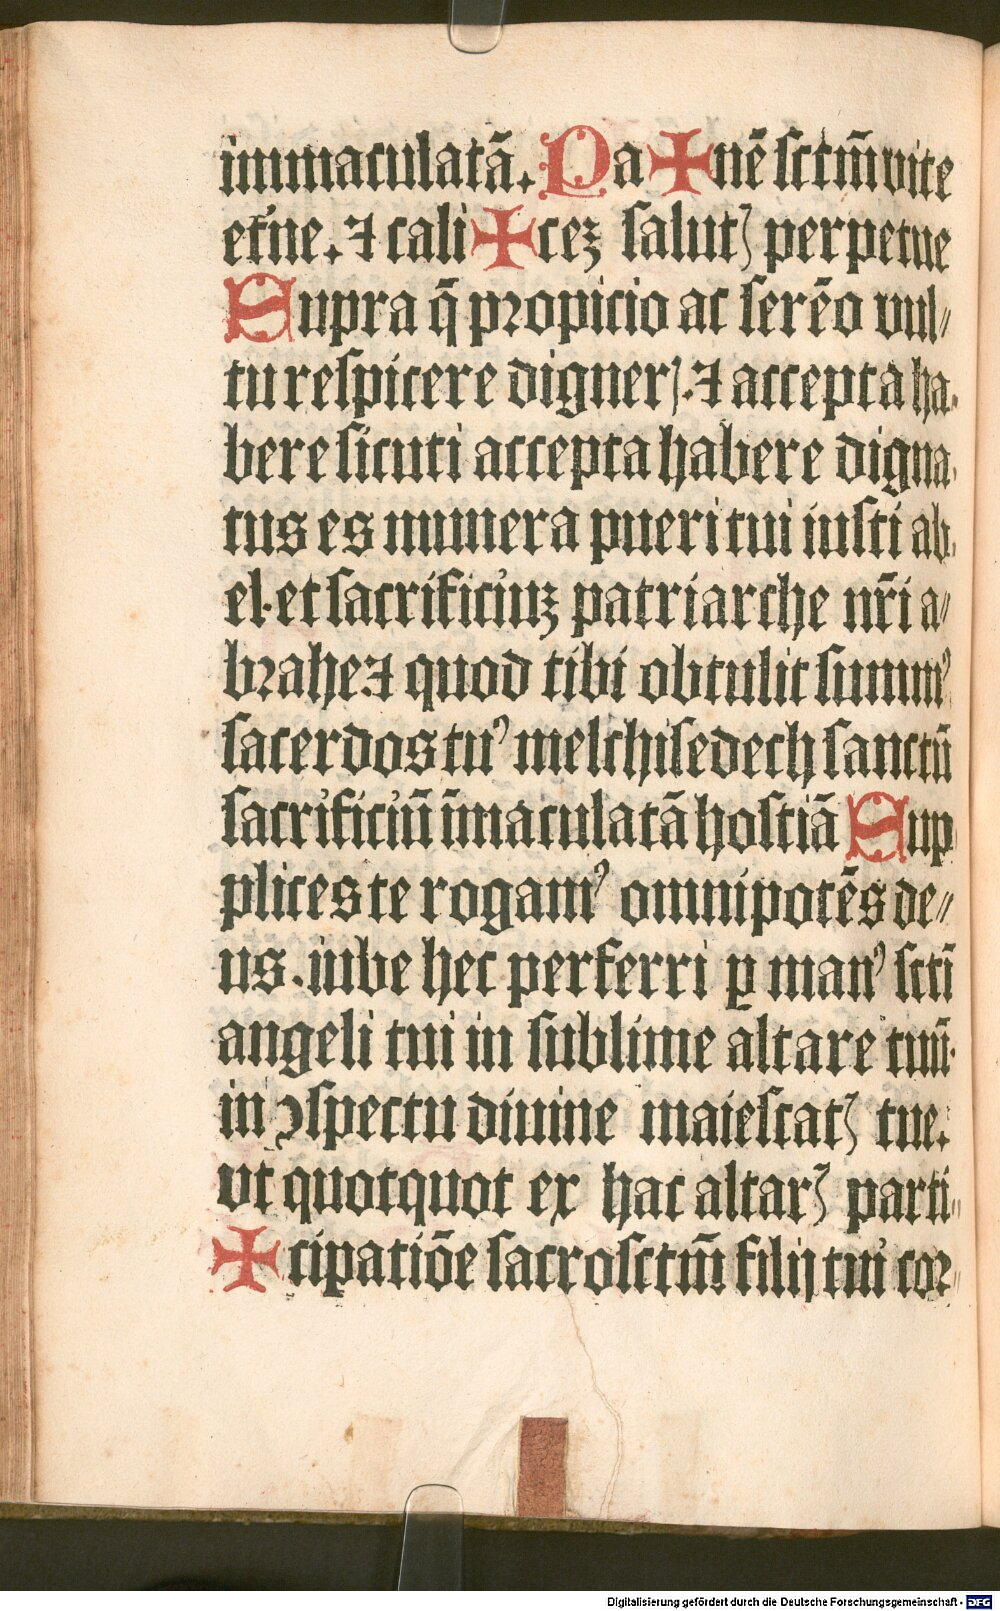 immaculatā. Pa✠nē sctm̄ vite
et̓ne. ⁊ cali✠cez salutꝭ perpetue
Supra q̄ propicio ac serēo vul⸗
tu respicere digner̄. ⁊ accepta ha⸗
bere sicuti accepta habere digna⸗
tus es munera pueri tui iusti ab⸗
el. et sacrificiuz patriarche nr̄i a⸗
brahe ⁊ quod tibi obtulit summꝰ
sacerdos tuꝰ melchisedech sanctū
sacrificiū īmaculatā hostiā Sup
plices te rogamꝰ omnipotēs de⸗
us. iube hec perferri ꝑ manꝰ scti̅
angeli tui in sublime altare tuū.
in ꝯspectu diuine maiestatꝭ tue.
vt quotquot ex hac altarꝭ parti⸗
✠cipatiōe sacrosctm̄ filij tui cor⸗
Digitalisierung gefördert durch die Deutsche Forschungsgemeinschaft - DFG